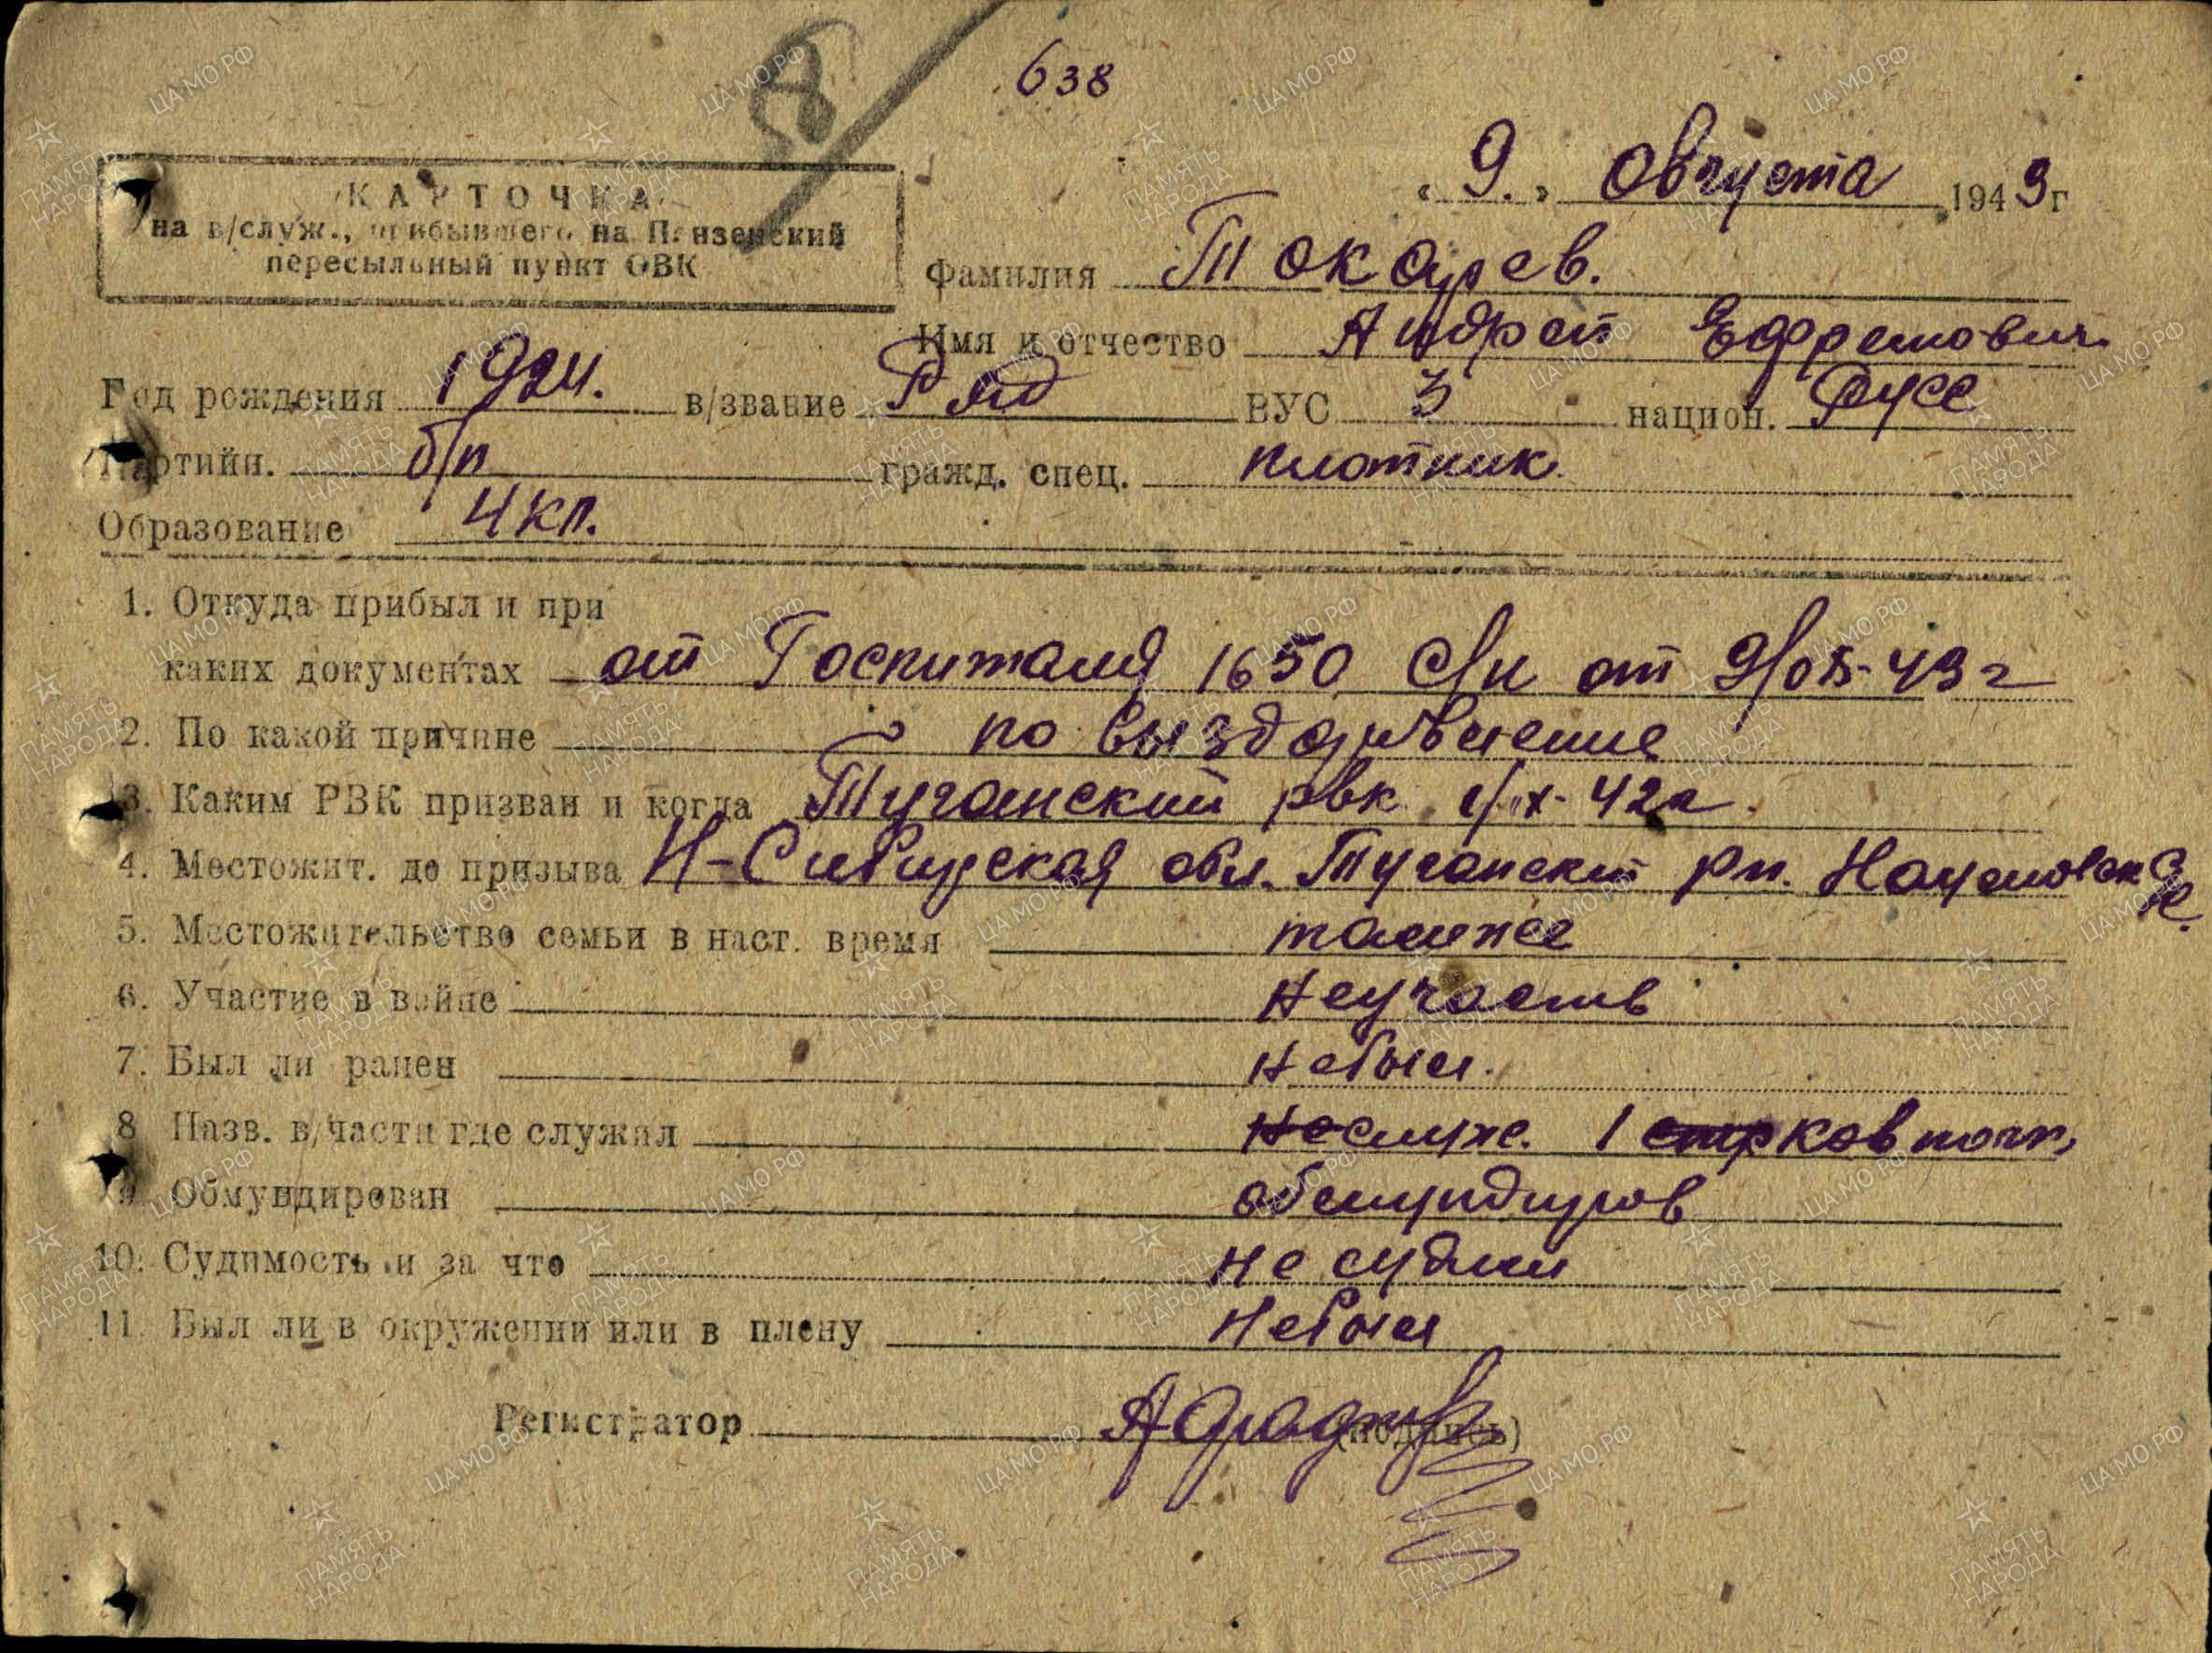 638
КАРТОЧКА
на в/служ., прибывшего на Пензенский
пересыльный пункт ОВК
"9." Августа 1943г
Фамилия Токарев.
Имя и отчество Андрей Ефремович.
Год рождения 1924. в/звание Ряд ВУС 3 национ. Русс
Партийн. б/п гражд. спец. плотник.
Образование 4 кл.
1. Откуда прибыл и при
каких документах от Госпиталя 1650 с/н от 9/08-43г
2. По какой причине по выздаровление
3. Каким РВК призван и когда Туганский рвк 1/IX-42г.
4. Местожит. до призыва Н-Сибирская обл. Туганский рн. Наумовск
5. Местожительство семьи в наст. время тамже
6. Участие в войне неучаств
7. Был ли ранен небыл.
8 Назв. в/части где служал неслуж. 1 стр ков полк,
9. Обмундирован обмундиров
10. Судимость и за что не судим
11. Был ли в окружении или в плену небыл
Регистратор (подпись)
ЦАМО.РФ
ПАМЯТЬ
НАРОДА